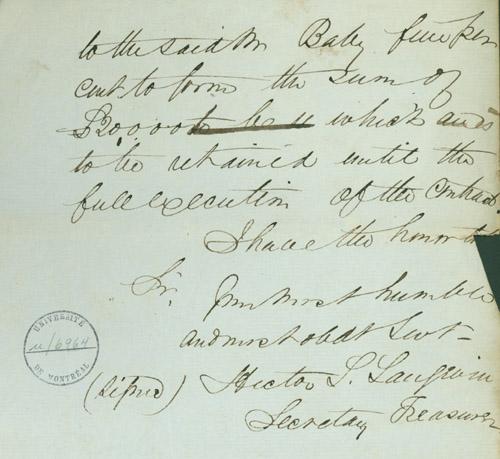 to the said Mr Baby five per
cent to form the sum of
$20,000 to be u which and is
to be retained until the
full execution of the Contract
I have the honor to
Sir,
Your most humble
and most obdt Servt
(signed) Hector L. Langevin
Secretary Treasurer
UNIVERSITÉ
u/6964
DE MONTRÉAL